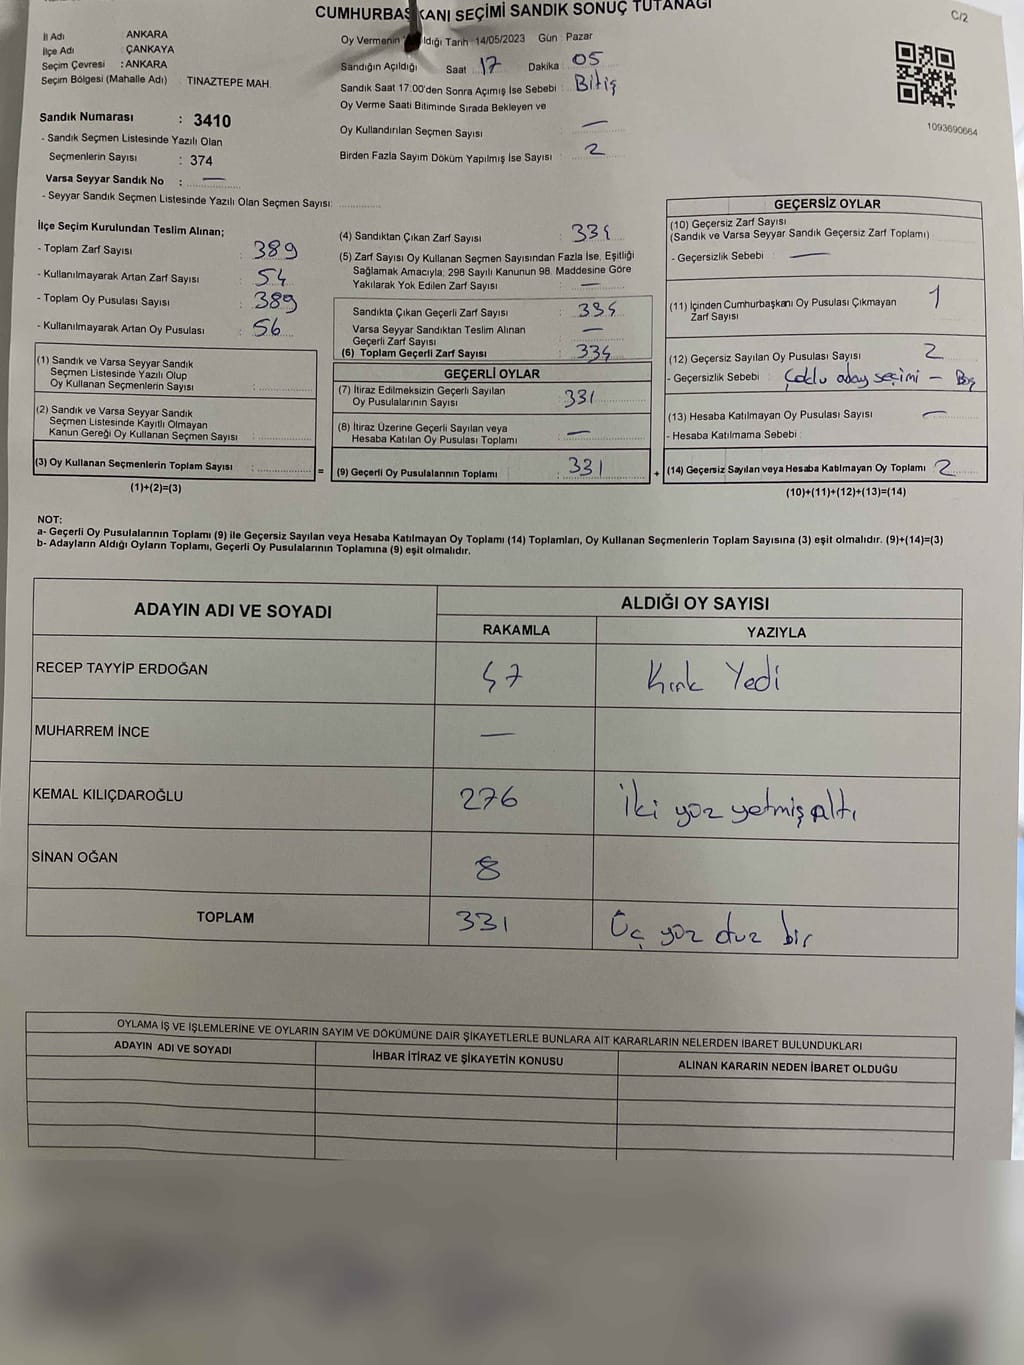 CUMHURBAŞKANI SEÇİMİ SANDIK SONUÇ TUTANAĞI
C/2
İl Adı ANKARA
İlçe Adı : ÇANKAYA
Seçim Çevresi : ANKARA
Seçim Bölgesi (Mahalle Adı) : TINAZTEPE MAH.
Sandık Numarası : 3410
- Sandık Seçmen Listesinde Yazılı Olan
Seçmenlerin Sayısı : 374
Varsa Seyyar Sandık No : —
- Seyyar Sandık Seçmen Listesinde Yazılı Olan Seçmen Sayısı:
Oy Vermenin Tarih : 14/05/2023 Gün : Pazar
Sandığın Açıldığı Saat 17 Dakika 05
Sandık Saat 17:00'den Sonra Açımış İse Sebebi : Bitiş
Oy Verme Saati Bitiminde Sırada Bekleyen ve
Oy Kullandırılan Seçmen Sayısı —
Birden Fazla Sayım Döküm Yapılmış İse Sayısı : 2
1093690664
İlçe Seçim Kurulundan Teslim Alınan;
- Toplam Zarf Sayısı : 389
- Kullanılmayarak Artan Zarf Sayısı : 54
- Toplam Oy Pusulası Sayısı : 389
- Kullanılmayarak Artan Oy Pusulası : 56
(1) Sandık ve Varsa Seyyar Sandık
Seçmen Listesinde Yazılı Olup
Oy Kullanan Seçmenlerin Sayısı :
(2) Sandık ve Varsa Seyyar Sandık
Seçmen Listesinde Kayıtlı Olmayan
Kanun Gereği Oy Kullanan Seçmen Sayısı :
(3) Oy Kullanan Seçmenlerin Toplam Sayısı :
(1)+(2)=(3)
=
(4) Sandıktan Çıkan Zarf Sayısı :
(5) Zarf Sayısı Oy Kullanan Seçmen Sayısından Fazla İse, Eşitliği
Sağlamak Amacıyla, 298 Sayılı Kanunun 98. Maddesine Göre
Yakılarak Yok Edilen Zarf Sayısı : —
Sandıkta Çıkan Geçerli Zarf Sayısı :
Varsa Seyyar Sandıktan Teslim Alınan
Geçerli Zarf Sayısı : —
(6) Toplam Geçerli Zarf Sayısı : 334
GEÇERLİ OYLAR
(7) İtiraz Edilmeksizin Geçerli Sayılan
Oy Pusulalarının Sayısı : 331
(8) İtiraz Üzerine Geçerli Sayılan veya
Hesaba Katılan Oy Pusulası Toplamı : —
(9) Geçerli Oy Pusulalarının Toplamı : 331
+
GEÇERSİZ OYLAR
(10) Geçersiz Zarf Sayısı
(Sandık ve Varsa Seyyar Sandık Geçersiz Zarf Toplamı)
- Geçersizlik Sebebi : —
(11) İçinden Cumhurbaşkanı Oy Pusulası Çıkmayan
Zarf Sayısı 1
(12) Geçersiz Sayılan Oy Pusulası Sayısı 2
- Geçersizlik Sebebi : Çoklu aday seçimi - Boş
(13) Hesaba Katılmayan Oy Pusulası Sayısı —
- Hesaba Katılmama Sebebi :
(14) Geçersiz Sayılan veya Hesaba Katılmayan Oy Toplamı 2
(10)+(11)+(12)+(13)=(14)
NOT:
a- Geçerli Oy Pusulalarının Toplamı (9) ile Geçersiz Sayılan veya Hesaba Katılmayan Oy Toplamı (14) Toplamları, Oy Kullanan Seçmenlerin Toplam Sayısına (3) eşit olmalıdır. (9)+(14)=(3)
b- Adayların Aldığı Oyların Toplamı, Geçerli Oy Pusulalarının Toplamına (9) eşit olmalıdır.
ADAYIN ADI VE SOYADI ALDIĞI OY SAYISI
RAKAMLA YAZIYLA
RECEP TAYYİP ERDOĞAN 47 Kırk Yedi
MUHARREM İNCE —
KEMAL KILIÇDAROĞLU 276 İki yüz yetmiş altı
SİNAN OĞAN 8
TOPLAM 331 Üç yüz otuz bir
OYLAMA İŞ VE İŞLEMLERİNE VE OYLARIN SAYIM VE DÖKÜMÜNE DAİR ŞİKAYETLERLE BUNLARA AİT KARARLARIN NELERDEN İBARET BULUNDUKLARI
ADAYIN ADI VE SOYADI İHBAR İTİRAZ VE ŞİKAYETİN KONUSU ALINAN KARARIN NEDEN İBARET OLDUĞU